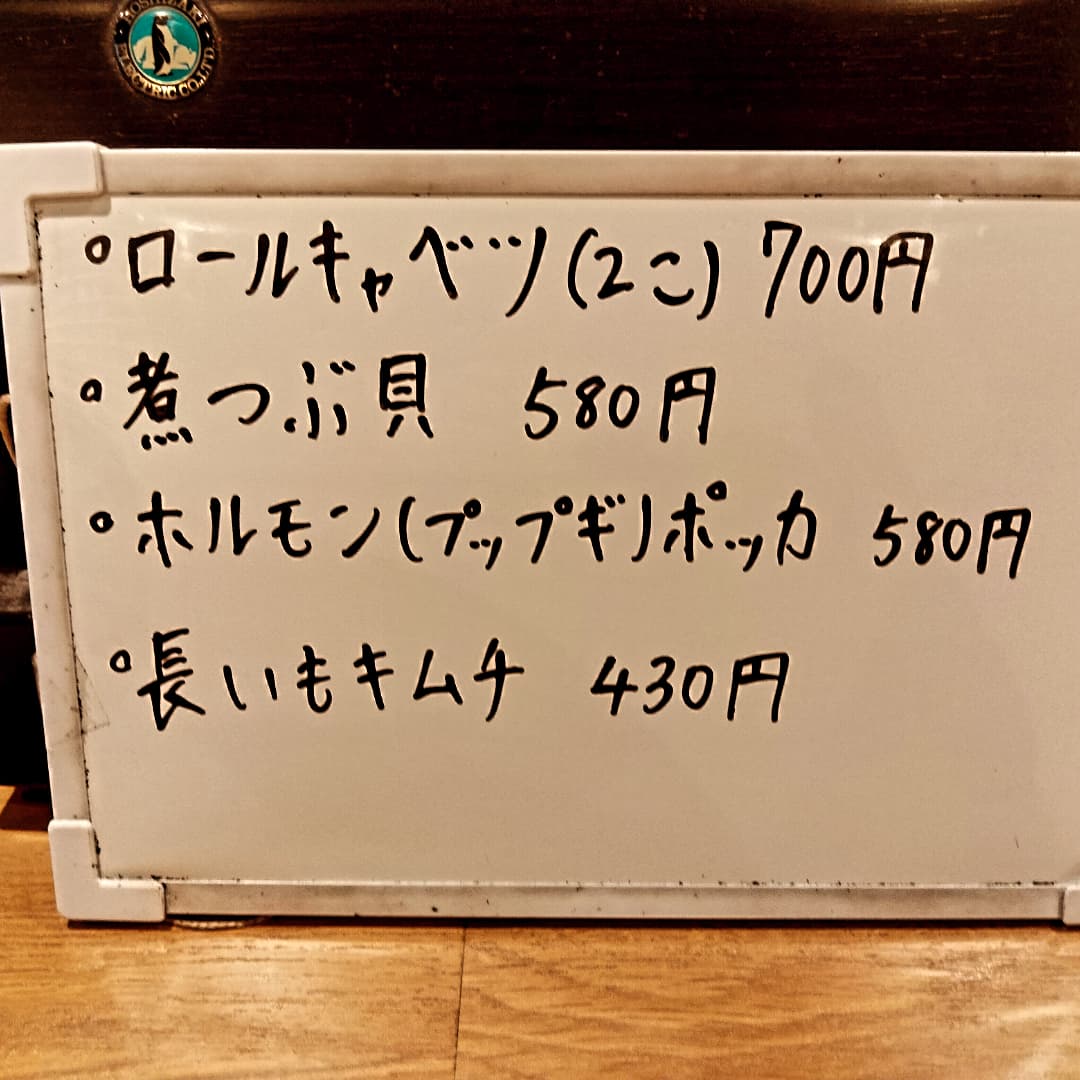 HOSHIZAKI
ELECTRIC CO.,LTD.
°ロールキャベツ(2こ) 700円
°煮つぶ貝 580円
°ホルモン(プップギ)ポッカ 580円
°長いもキムチ 430円